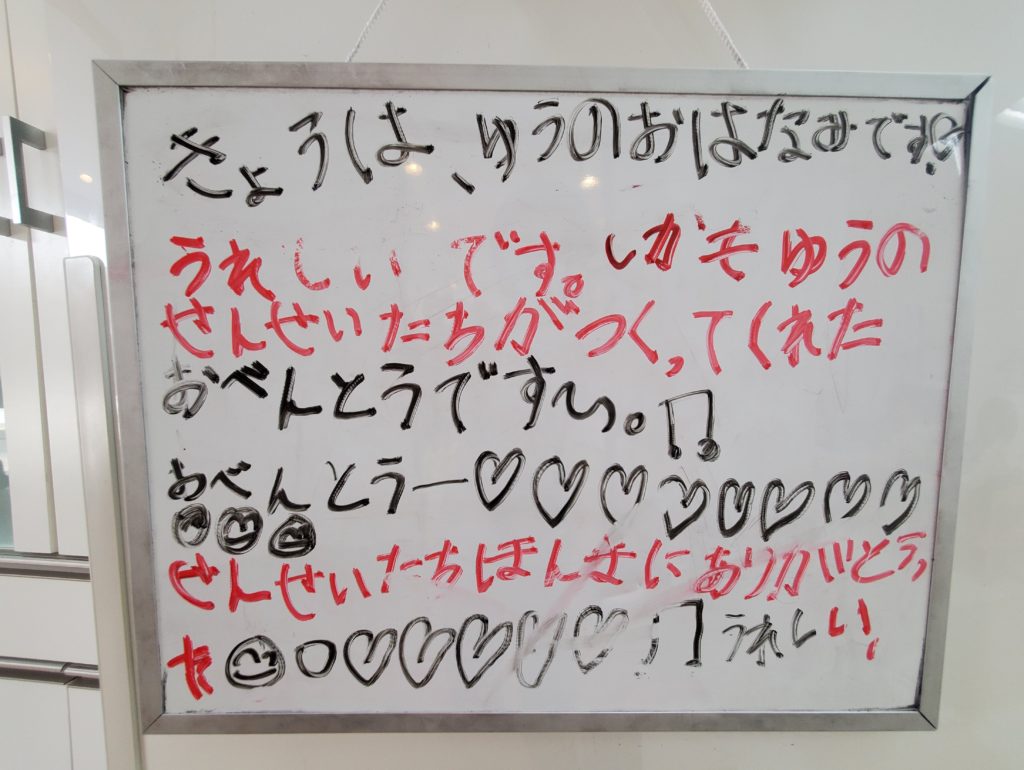 きょうは、ゆうのおはなみです♡
うれしいです。しかもゆうの
せんせいたちがつくってくれた
おべんとうです〜。♫
おべんとうー♡♡♡♡♡♡♡♡
せんせいたちほんまにありがとう、
た ○♡♡♡♡♡♫うれしい、